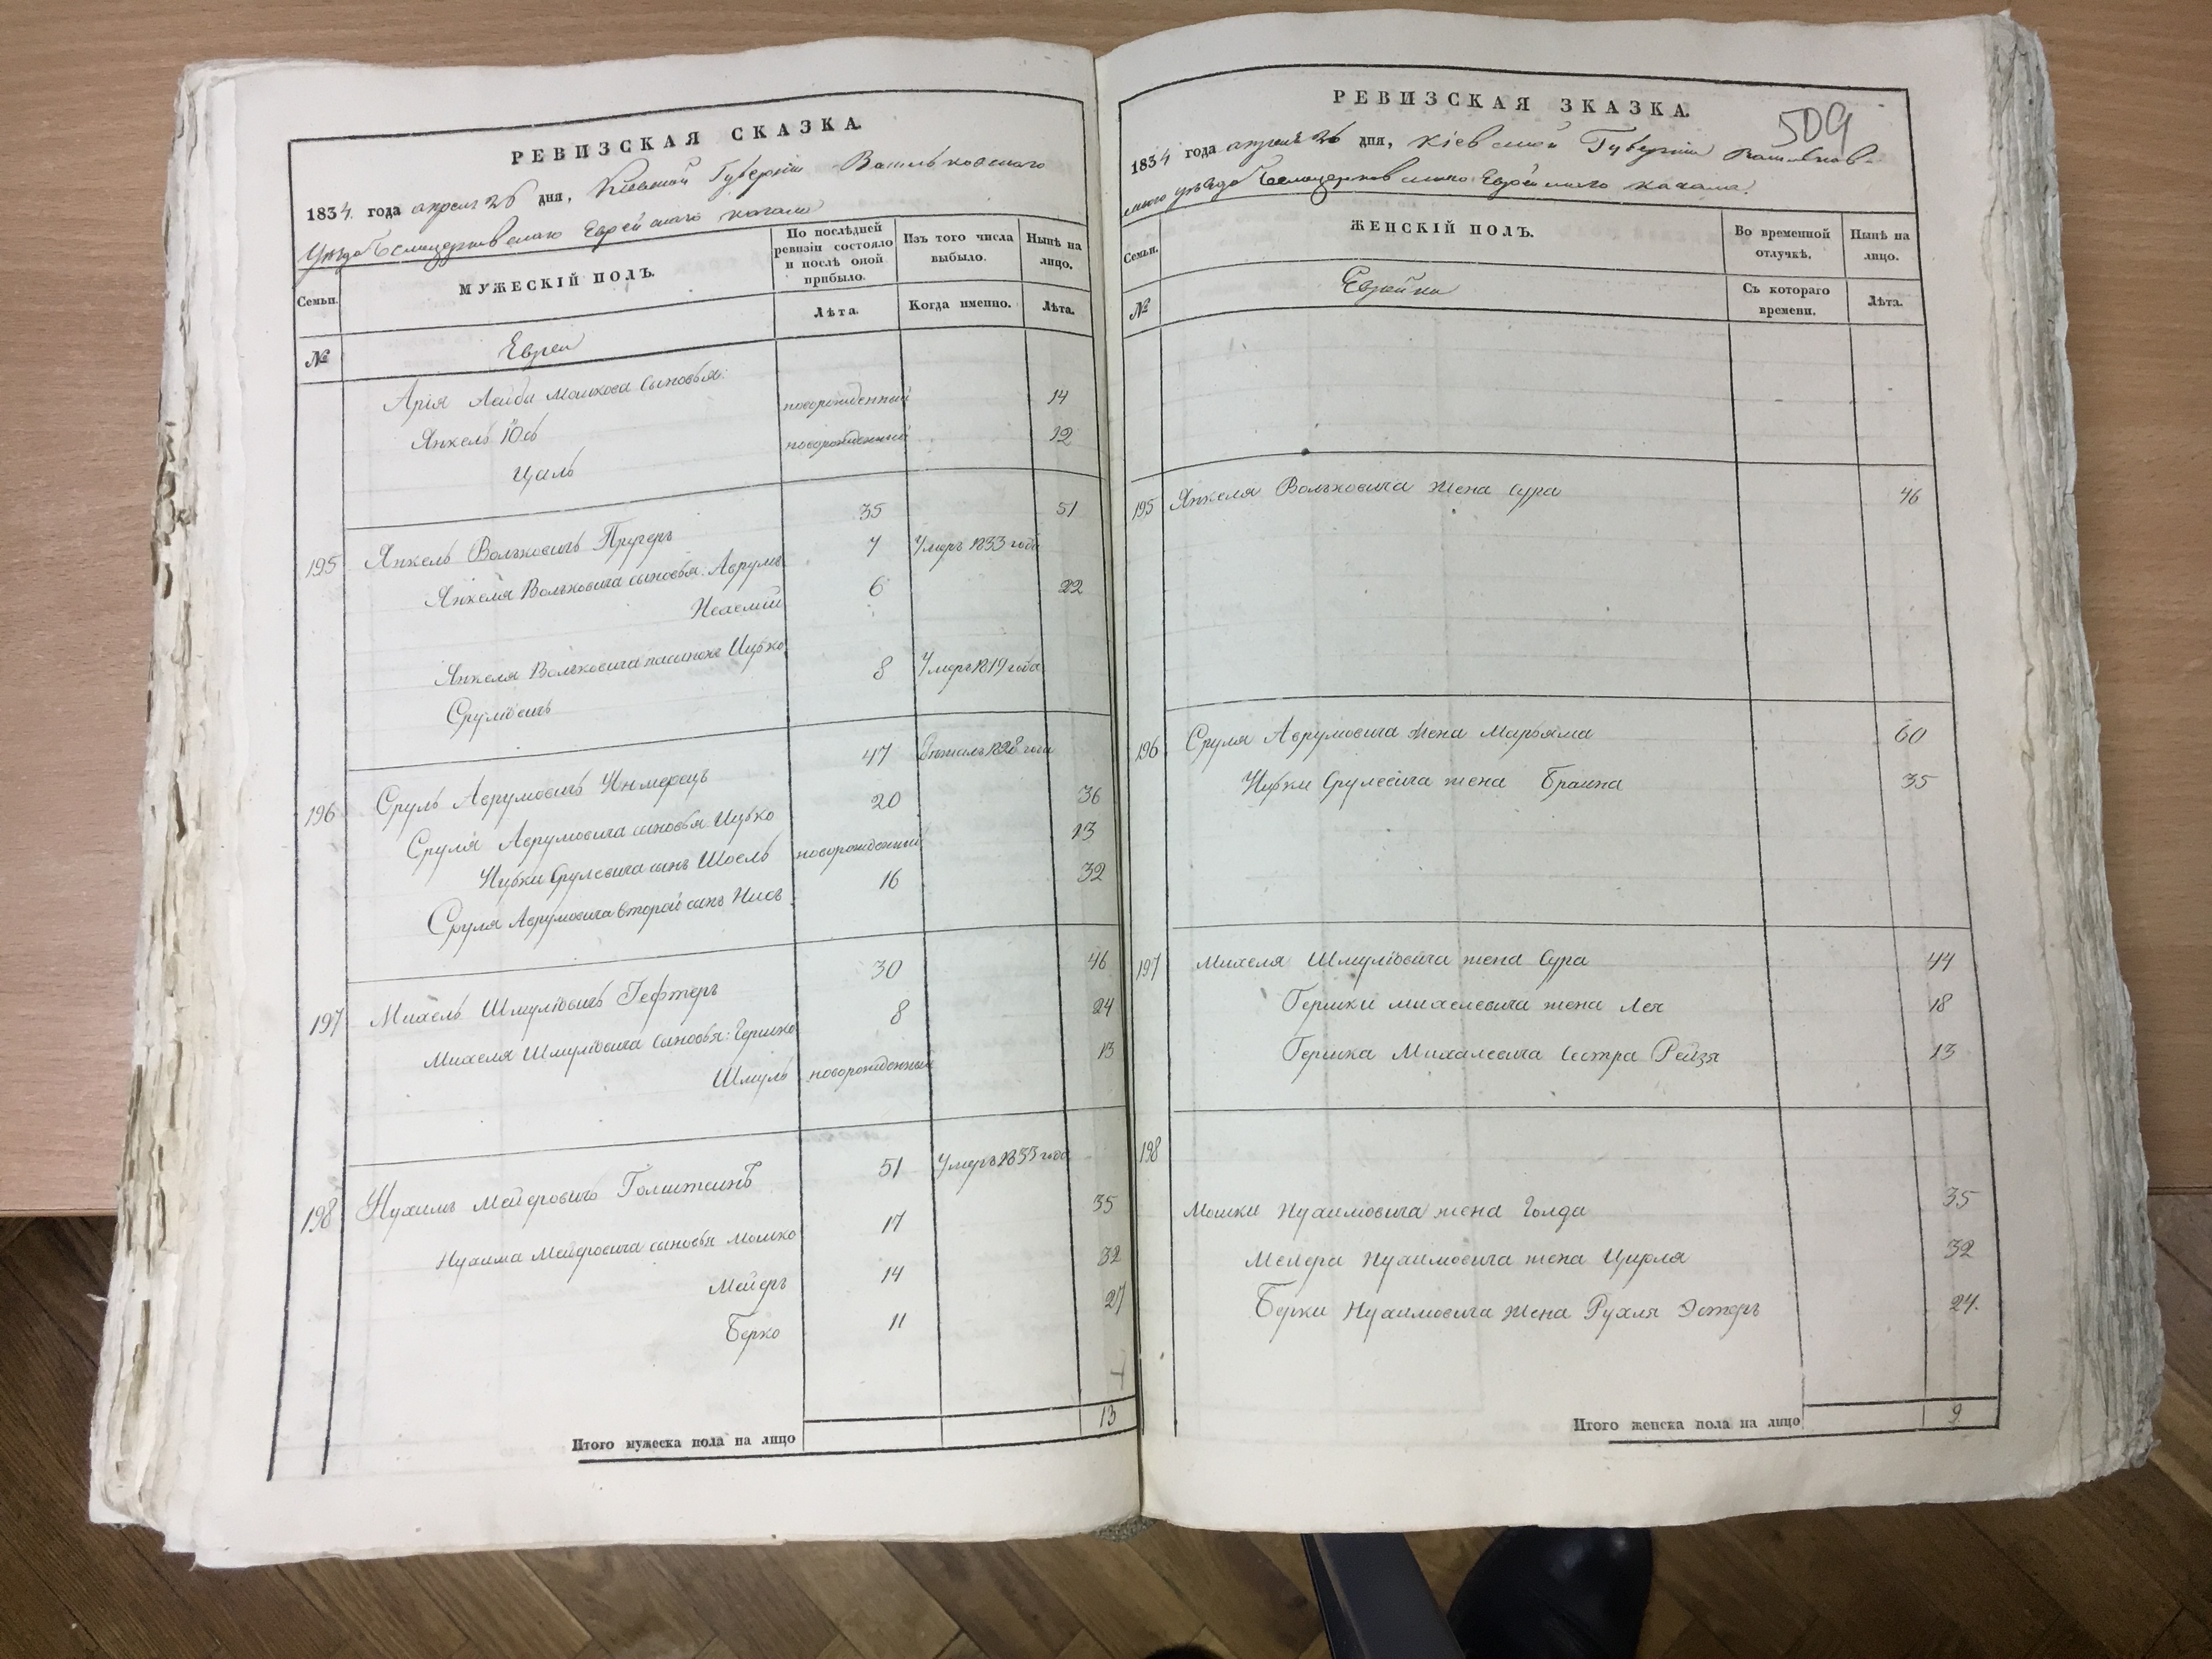 РЕВИЗСКАЯ СКАЗКА.
1834 года апреля 26 дня, Кіевской Губерніи Васильковского
Уезда Белоцерковского Еврейского кагала
Семьи.
МУЖЕСКІЙ ПОЛЪ.
По послѣдней ревизіи состояло и послѣ оной прибыло.
Изъ того числа выбыло.
Нынѣ на лицо.
№
Евреи
Лѣта.
Когда именно.
Лѣта.
Арія Лейби Мошкова сыновья:
Янкель Юсь новорожденный 14
Цаль новорожденный 12
195 Янкель Вольковичь 35 51
Янкеля Вольковича сыновья: Аврумъ 7 Умеръ 1833 года
6 22
Янкеля Вольковича пасынокъ Ицько
Срулiовичь 8 Умеръ 1819 года
196 Сруль Аврумовичь 47 бежалъ 1828 года
Сруля Аврумовича сыновья: Ицько 20 36
Ицьки Срулевича сынъ Шоель новорожденный 13
Сруля Аврумовича второй сынъ Нисъ 16 32
197 Михель Шмулiовичь Гефтеръ 30 46
Михеля Шмулiовича сыновья: Гершко 8 24
Шмуль новорожденный 13
198 Нухимъ Мейеровичь Голштеинъ 51 Умеръ 1833 года
Нухима Мейеровича сыновья Мошко 17 35
Мейеръ 14 32
Берко 11 27
Итого мужеска пола на лицо 13
РЕВИЗСКАЯ ЗКАЗКА.
509
1834 года апреля 26 дня, Кіевской Губерніи Васильков-
ского уезда Белоцерковского Еврейского кагала.
Семьи.
ЖЕНСКІЙ ПОЛЪ.
Во временной отлучкѣ.
Нынѣ на лицо.
№
Еврейки
Съ котораго времени.
Лѣта.
195 Янкеля Вольковича жена Сура 46
196 Сруля Аврумовича жена Марьяма 60
Ицьки Срулевича жена Браина 35
197 Михеля Шмулiовича жена Сура 44
Гершки Михелевича жена Лея 18
Гершка Михалевича сестра Рейзя 13
198
Мошки Нухимовича жена Голда 35
Мейера Нухимовича жена Ципля 32
Берки Нухимовича жена Рухля Эстеръ 24.
Итого женска пола на лицо 9